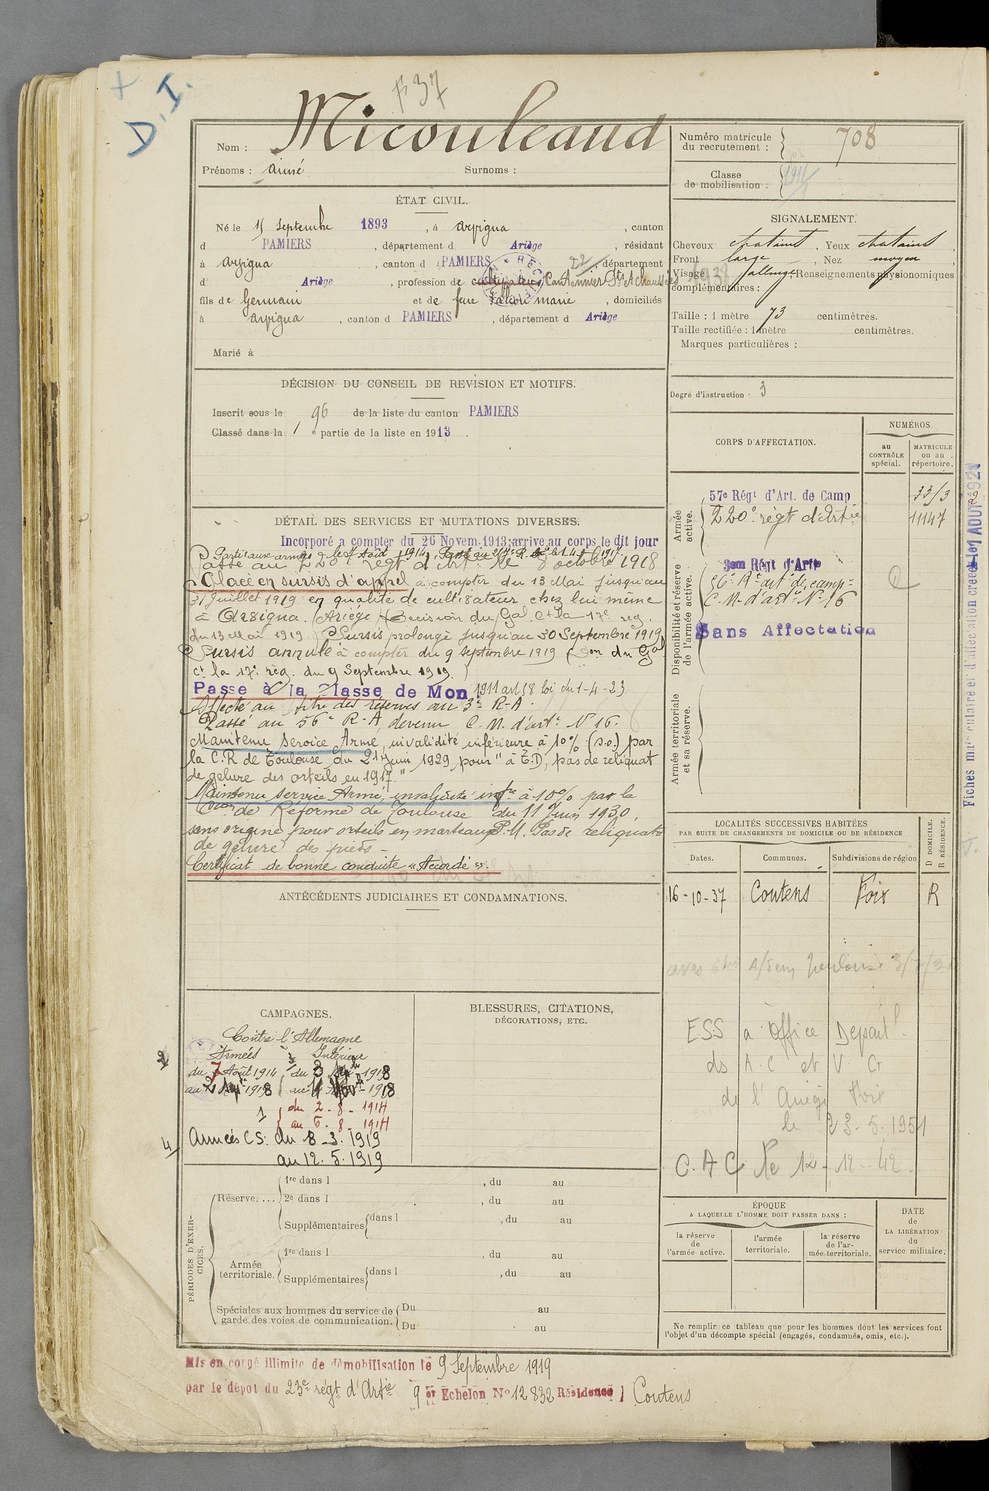 D. I.
P 37
Nom : Micouleaud
Prénoms : aimé Surnoms :
Numéro matricule du recrutement : 708
Classe de mobilisation :
ÉTAT CIVIL.
Né le 15 Septembre 1893, à arvigna, canton
d PAMIERS, département d Ariège, résidant
à arvigna, canton d PAMIERS, département
d' Ariège, profession de cultivateur Cantonnier Pts et chaussées
fils de Germain et de feue marie, domiciliés
à arvigna, canton d PAMIERS, département d Ariège
Marié à
SIGNALEMENT.
Cheveux chatains, Yeux chatains
Front large, Nez moyen
Visage allongé Renseignements physionomiques
complémentaires :
Taille : 1 mètre 73 centimètres.
Taille rectifiée : 1 mètre centimètres.
Marques particulières :
Degré d'instruction 3
DÉCISION DU CONSEIL DE REVISION ET MOTIFS.
Inscrit sous le 96 de la liste du canton PAMIERS
Classé dans la 1e partie de la liste en 1913.
CORPS D'AFFECTATION.
NUMÉROS
au CONTRÔLE spécial.
MATRICULE ou au répertoire.
Armée active.
57e Régt d'Art. de Camp 33/3
220e régt d'Artie 11147
Disponibilité et réserve de l'armée active.
3em Régt d'Artie
56e Rt art de camp=
C. M. d'art. N° 16
Sans Affectation
Armée territoriale et sa réserve.
Fiches matriculaire et d'affectation créées le 1 AOUT 192
DÉTAIL DES SERVICES ET MUTATIONS DIVERSES.
Incorporé a compter du 26 Novem. 1913; arrivé au corps le dit jour
Parti aux armées le 7 Août 1914.
Passé au 220e régt d'Art. le 8 octobre 1918
Placé en sursis d'appel à compter du 13 Mai jusqu'au
31 Juillet 1919 en qualité de cultivateur chez lui même
à Arvigna. (Ariège) (Décision du Gal Ct la 17e rég.
du 13 Mai 1919. Sursis prolongé jusqu'au 30 Septembre 1919
Sursis annulé à compter du 9 Septembre 1919 (Don du Gal
Ct la 17e rég. du 9 Septembre 1919.)
Passé à la Classe de Mob. 1911 art 58 loi du 1-4-23
Affecté au titre des réserves au 3e R.A.
Passé au 56e R.A, devenu C. M. d'art. N° 16.
Maintenu Service Armé, invalidité inférieure à 10% (s.o.) par
la C.R de Toulouse du 21 Juin 1929, pour " à E.D, pas de reliquat
de gelure des orteils en 1917."
Maintenu Service Armé, invalidité infre à 10% par la
Con de Réforme de Toulouse du 11 Juin 1930,
sans origine pour orteils en marteau P.M. Pas de reliquats
de gelure des pieds -
Certificat de bonne conduite « Accordé ».
ANTÉCÉDENTS JUDICIAIRES ET CONDAMNATIONS.
LOCALITÉS SUCCESSIVES HABITÉES
PAR SUITE DE CHANGEMENTS DE DOMICILE OU DE RÉSIDENCE
Dates. Communes. Subdivisions de région D DOMICILE. R RÉSIDENCE.
16-10-37 Coutens Foix R
ESS à Office Départl
des A.C et V Cr
de l'Ariège Foix
le 23.5.1951
C.A.C le 12-12-42
CAMPAGNES.
Contre l'Allemagne
Armées Intérieur
du 7 Août 1914 du 3 1918
au 2 1918 au 1918
1 du 2-8-1914
au 6-8-1914
Armées CS. du 8-3-1919
au 12.5.1919
BLESSURES, CITATIONS,
DÉCORATIONS, ETC.
PÉRIODES D'EXERCICES.
Réserve.... 1re dans l , du au
2e dans l , du au
Supplémentaires dans l , du au
Armée territoriale. 1re dans l , du au
Supplémentaires dans l , du au
Spéciales aux hommes du service de garde des voies de communication. Du au
Du au
ÉPOQUE
A LAQUELLE L'HOMME DOIT PASSER DANS :
la réserve de l'armée active.
l'armée territoriale.
la réserve de l'armée territoriale.
DATE de LA LIBÉRATION du service militaire.
Ne remplir ce tableau que pour les hommes dont les services font
l'objet d'un décompte spécial (engagés, condamnés, omis, etc.).
Mis en congé illimité de démobilisation le 9 Septembre 1919
par le dépôt du 23e régt d'Artie 9 er Echelon N° 12832 Résidence Coutens